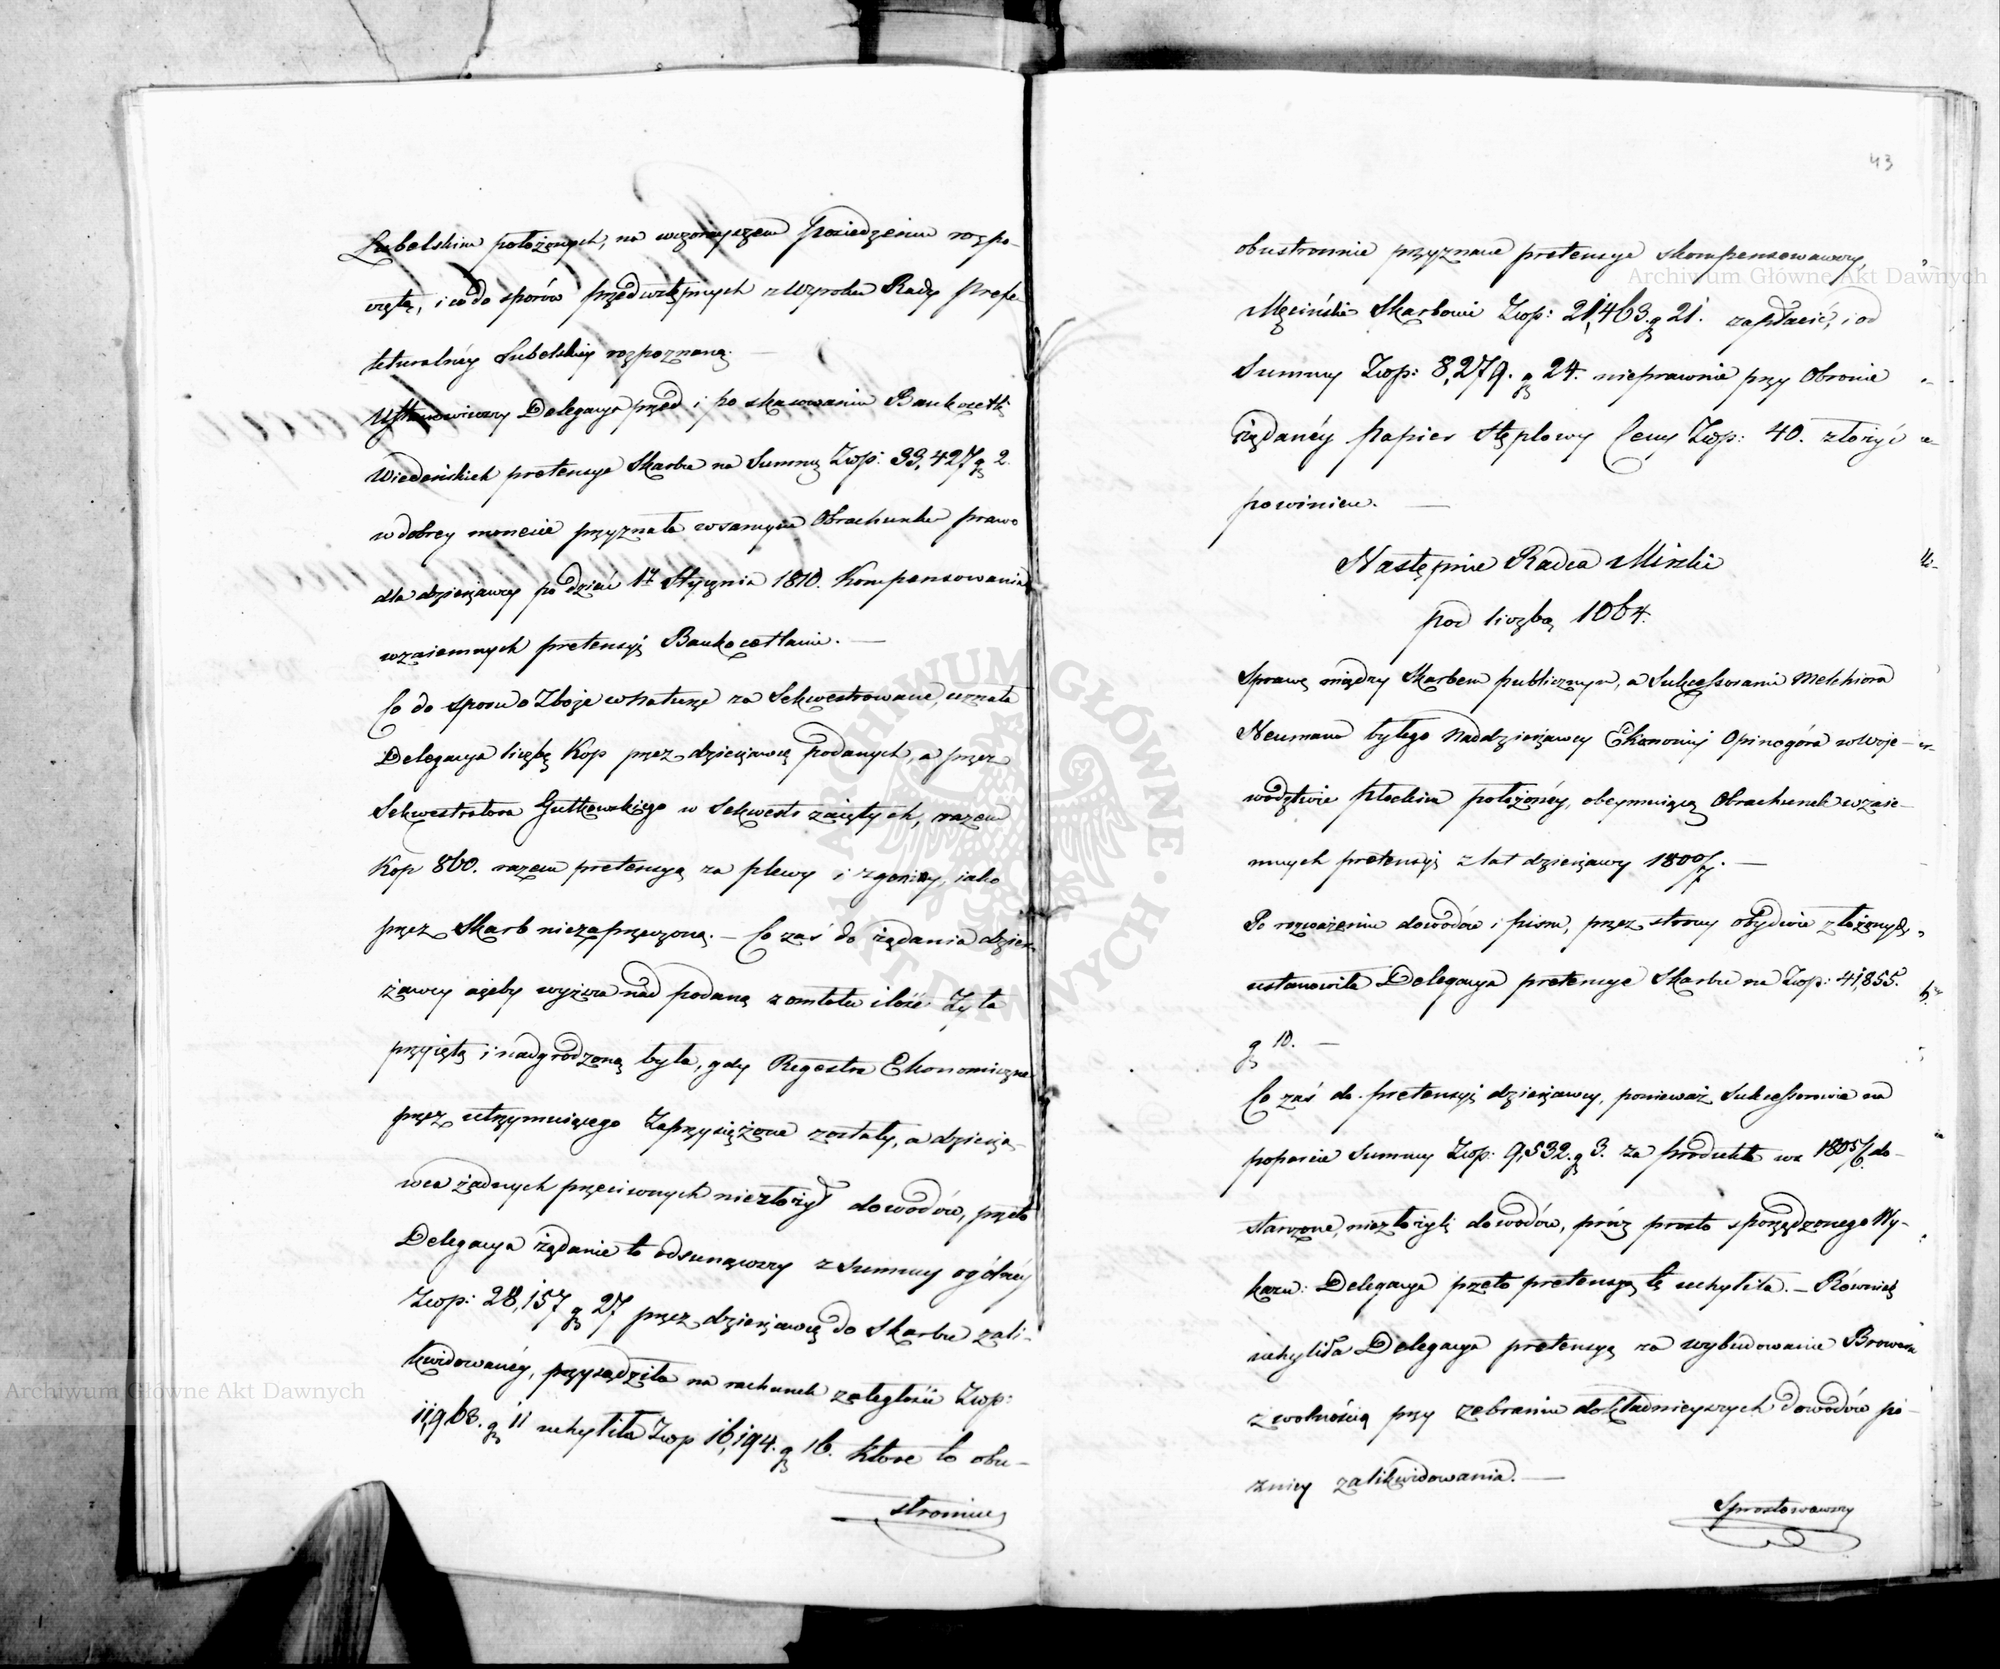 Lubelskim położonych, na wczorayszem Posiedzeniu rozpo-
częta, i co do sporów przedwstępnych z Wyroku Rady Prefe-
kturalnéy Lubelskiey rozpoznaną. —
Ustanowiwszy Delegacya przed i po skasowaniu Bankocetli
Wiedeńskich pretensye Skarbu na Summę Złłp: 33,427 g 2.
w dobrey monecie przyznała w samym Obrachunku prawo
dla dzierżawcy po dzień 1º Stycznia 1810. Kompensowania
wzaiemnych pretensyi Bankocetlami. —
Co do sporu o Zboże w Naturze za Sekwestrowane, uznała
Delegacya liczbę Kop przez dzierżawcę podanych, a przez
Sekwestratora Gutkowskiego w Sekwestr zaiętych, razem
Kop 860. razem pretensyą za plewy i zgoniny, iako
przez Skarb niezaprzeczoną. — Co zaś do żądania dzier-
żawcy ażeby wyższa nad podaną z omłotu ilość Żyta
przyiętą i nadgrodzoną była, gdy Regestra Ekonomiczne
przez utrzymuiącego Zaprzysiężone zostały, a dzierża-
wca żadnych przeciwnych niezłożył dowodów, przeto
Delegacya żądanie to odsunąwszy z Summy ogólnéy
Złłp: 28,157 g 27 przez dzierżawcę do Skarbu zali-
kwidowanéy, przysądziła na rachunek zaległości Złłp:
11,963. g 11 uchyliła Złłp 16,194. g 16. które to obu-
stronnie
43
obustronnie przyznane pretensye skompensowawszy
Męciński Skarbowi Złłp: 21,463. g 21. zapłacić, i od
Summy Złłp: 8,279. g 24. nieprawnie przy Obronie
żądanéy papier stęplowy Ceny Złłp: 40. złożyć
powinien. —
Następnie Radca Minli
pod liczbą 1064.
Sprawę między Skarbem publicznym, a Sukcessorami Melchiora
Neumana byłego Naddzierżawcy Ekonomij Opinogóra w Woje-
wództwie Płockim położonéy, obeymuiącą Obrachunek wzaie-
mnych pretensyi z lat dzierżawy 1800/7. —
Po rozważeniu dowodów i pism, przez strony obydwie złożonych,
ustanowiła Delegacya pretensye Skarbu na Złłp: 41,855.
g 10. —
Co zaś do pretensyi dzierżawcy, ponieważ Sukcessorowie na
poparcie Summy Złłp: 9,532. g 3. za produkta w r. 1805/6 do-
starczone, niezłożyli dowodów, prócz prosto sporządzonego Wy-
kazu: Delegacya przeto pretensyą tę uchyliła. — Również
uchyliła Delegacya pretensyą za wybudowanie Browaru
z wolnością przy zebraniu dokładnieyszych dowodów pó-
źniey zalikwidowania. —
Sprostowawszy
Archiwum Główne Akt Dawnych
Archiwum Główne Akt Dawnych
ARCHIWUM GŁÓWNE AKT DAWNYCH